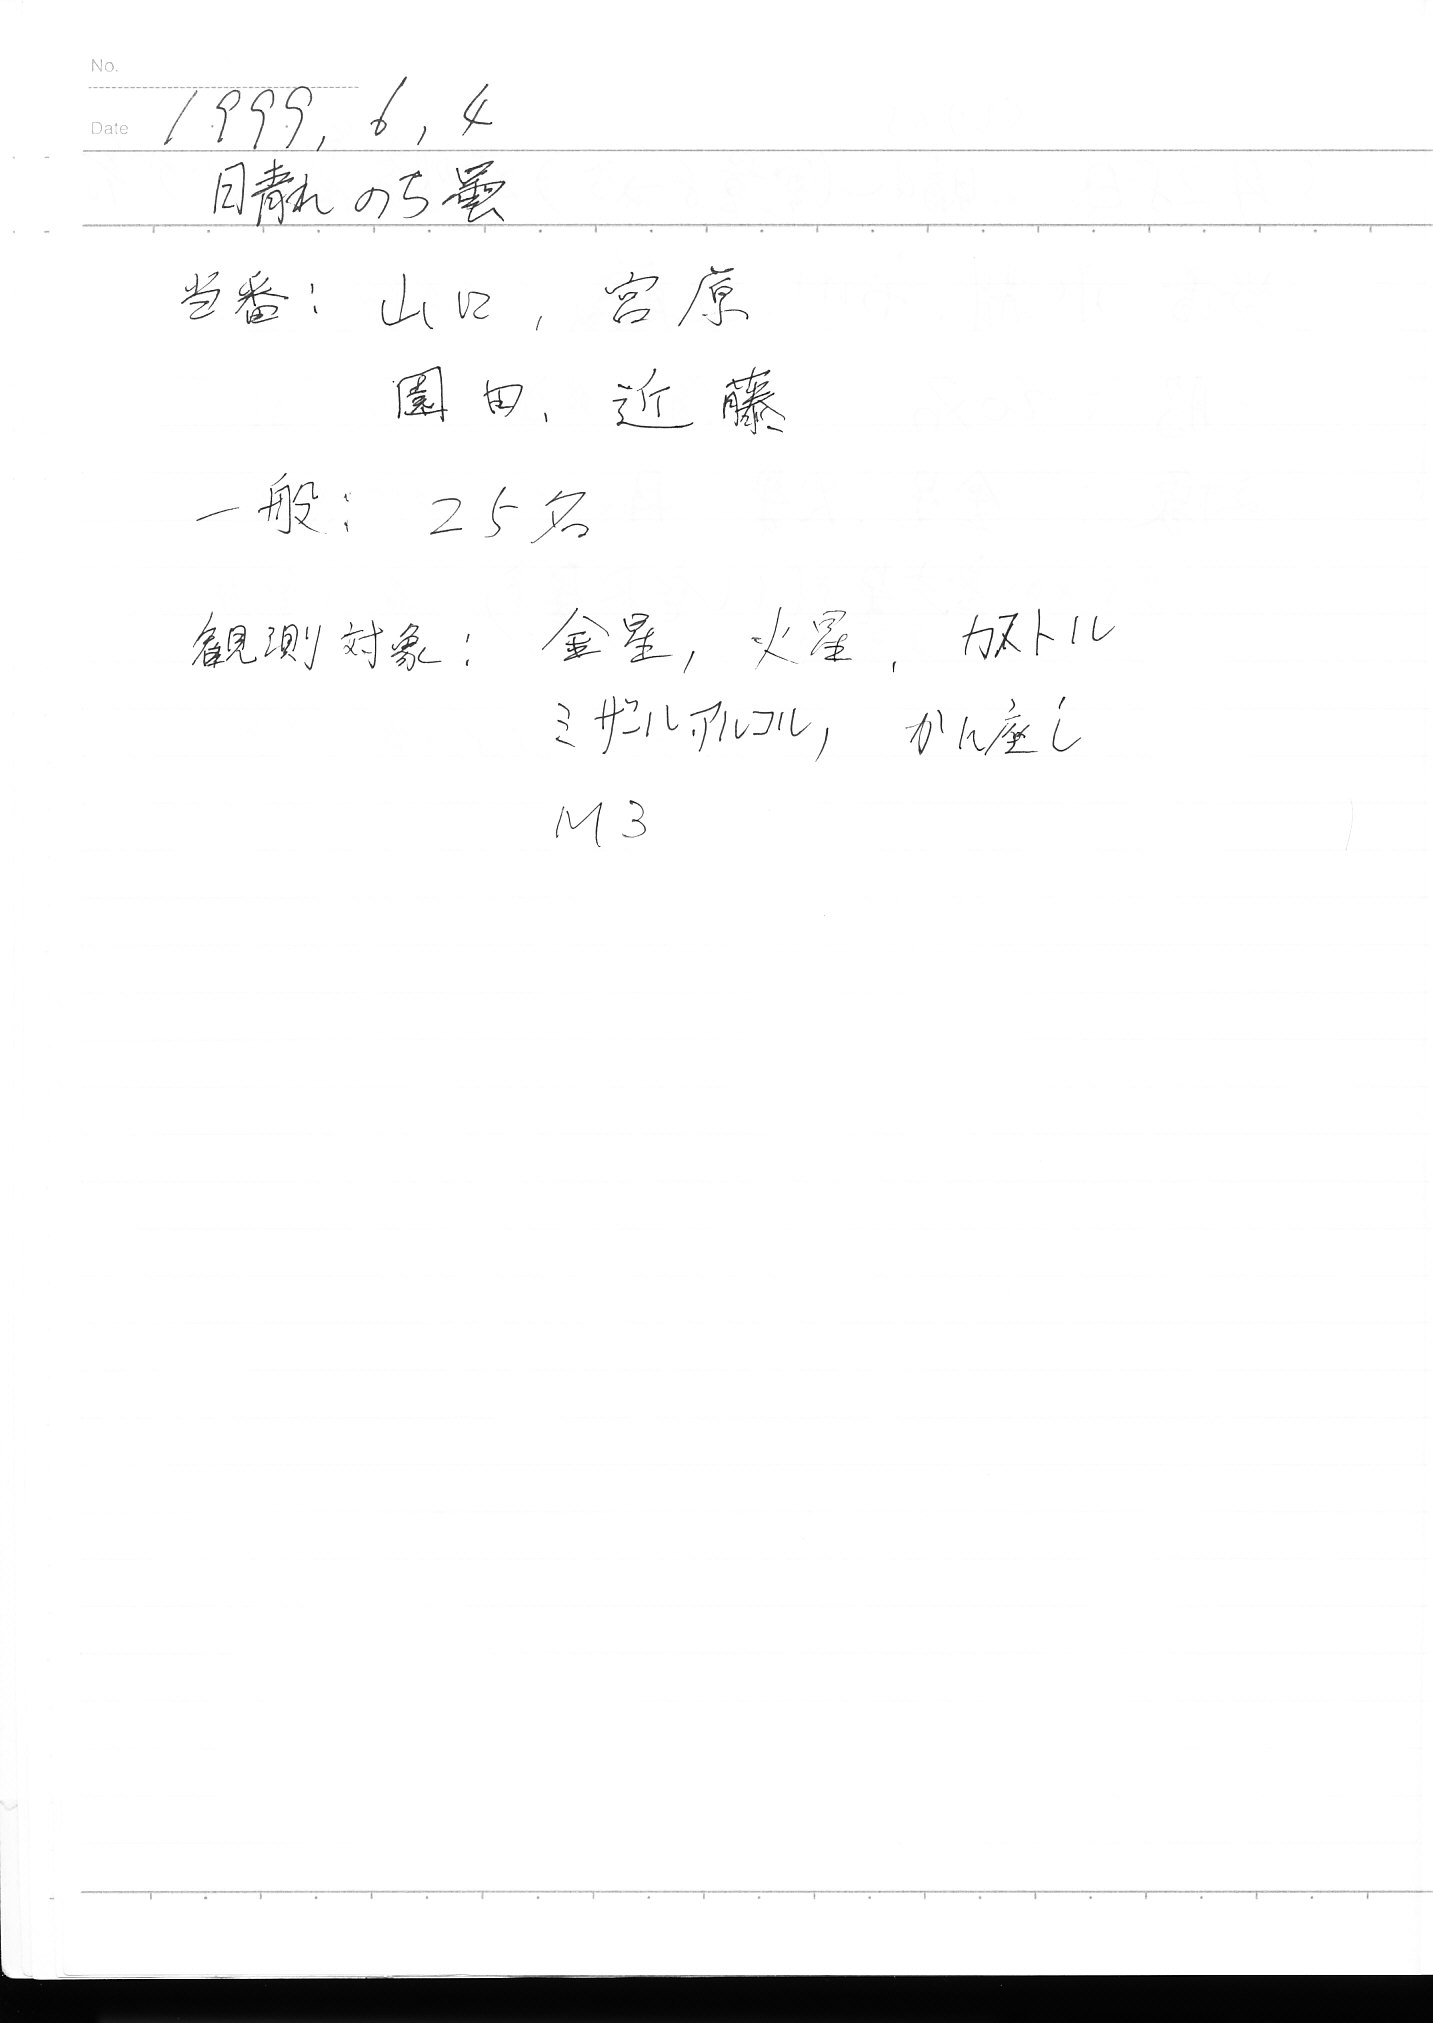 No.
Date 1999, 6, 4
晴れ のち 曇
当番: 山口, 宮原
園田, 近藤
一般: 25名
観測対象: 金星, 火星, カストル
ミザール, アルコル, かん座ι
M3